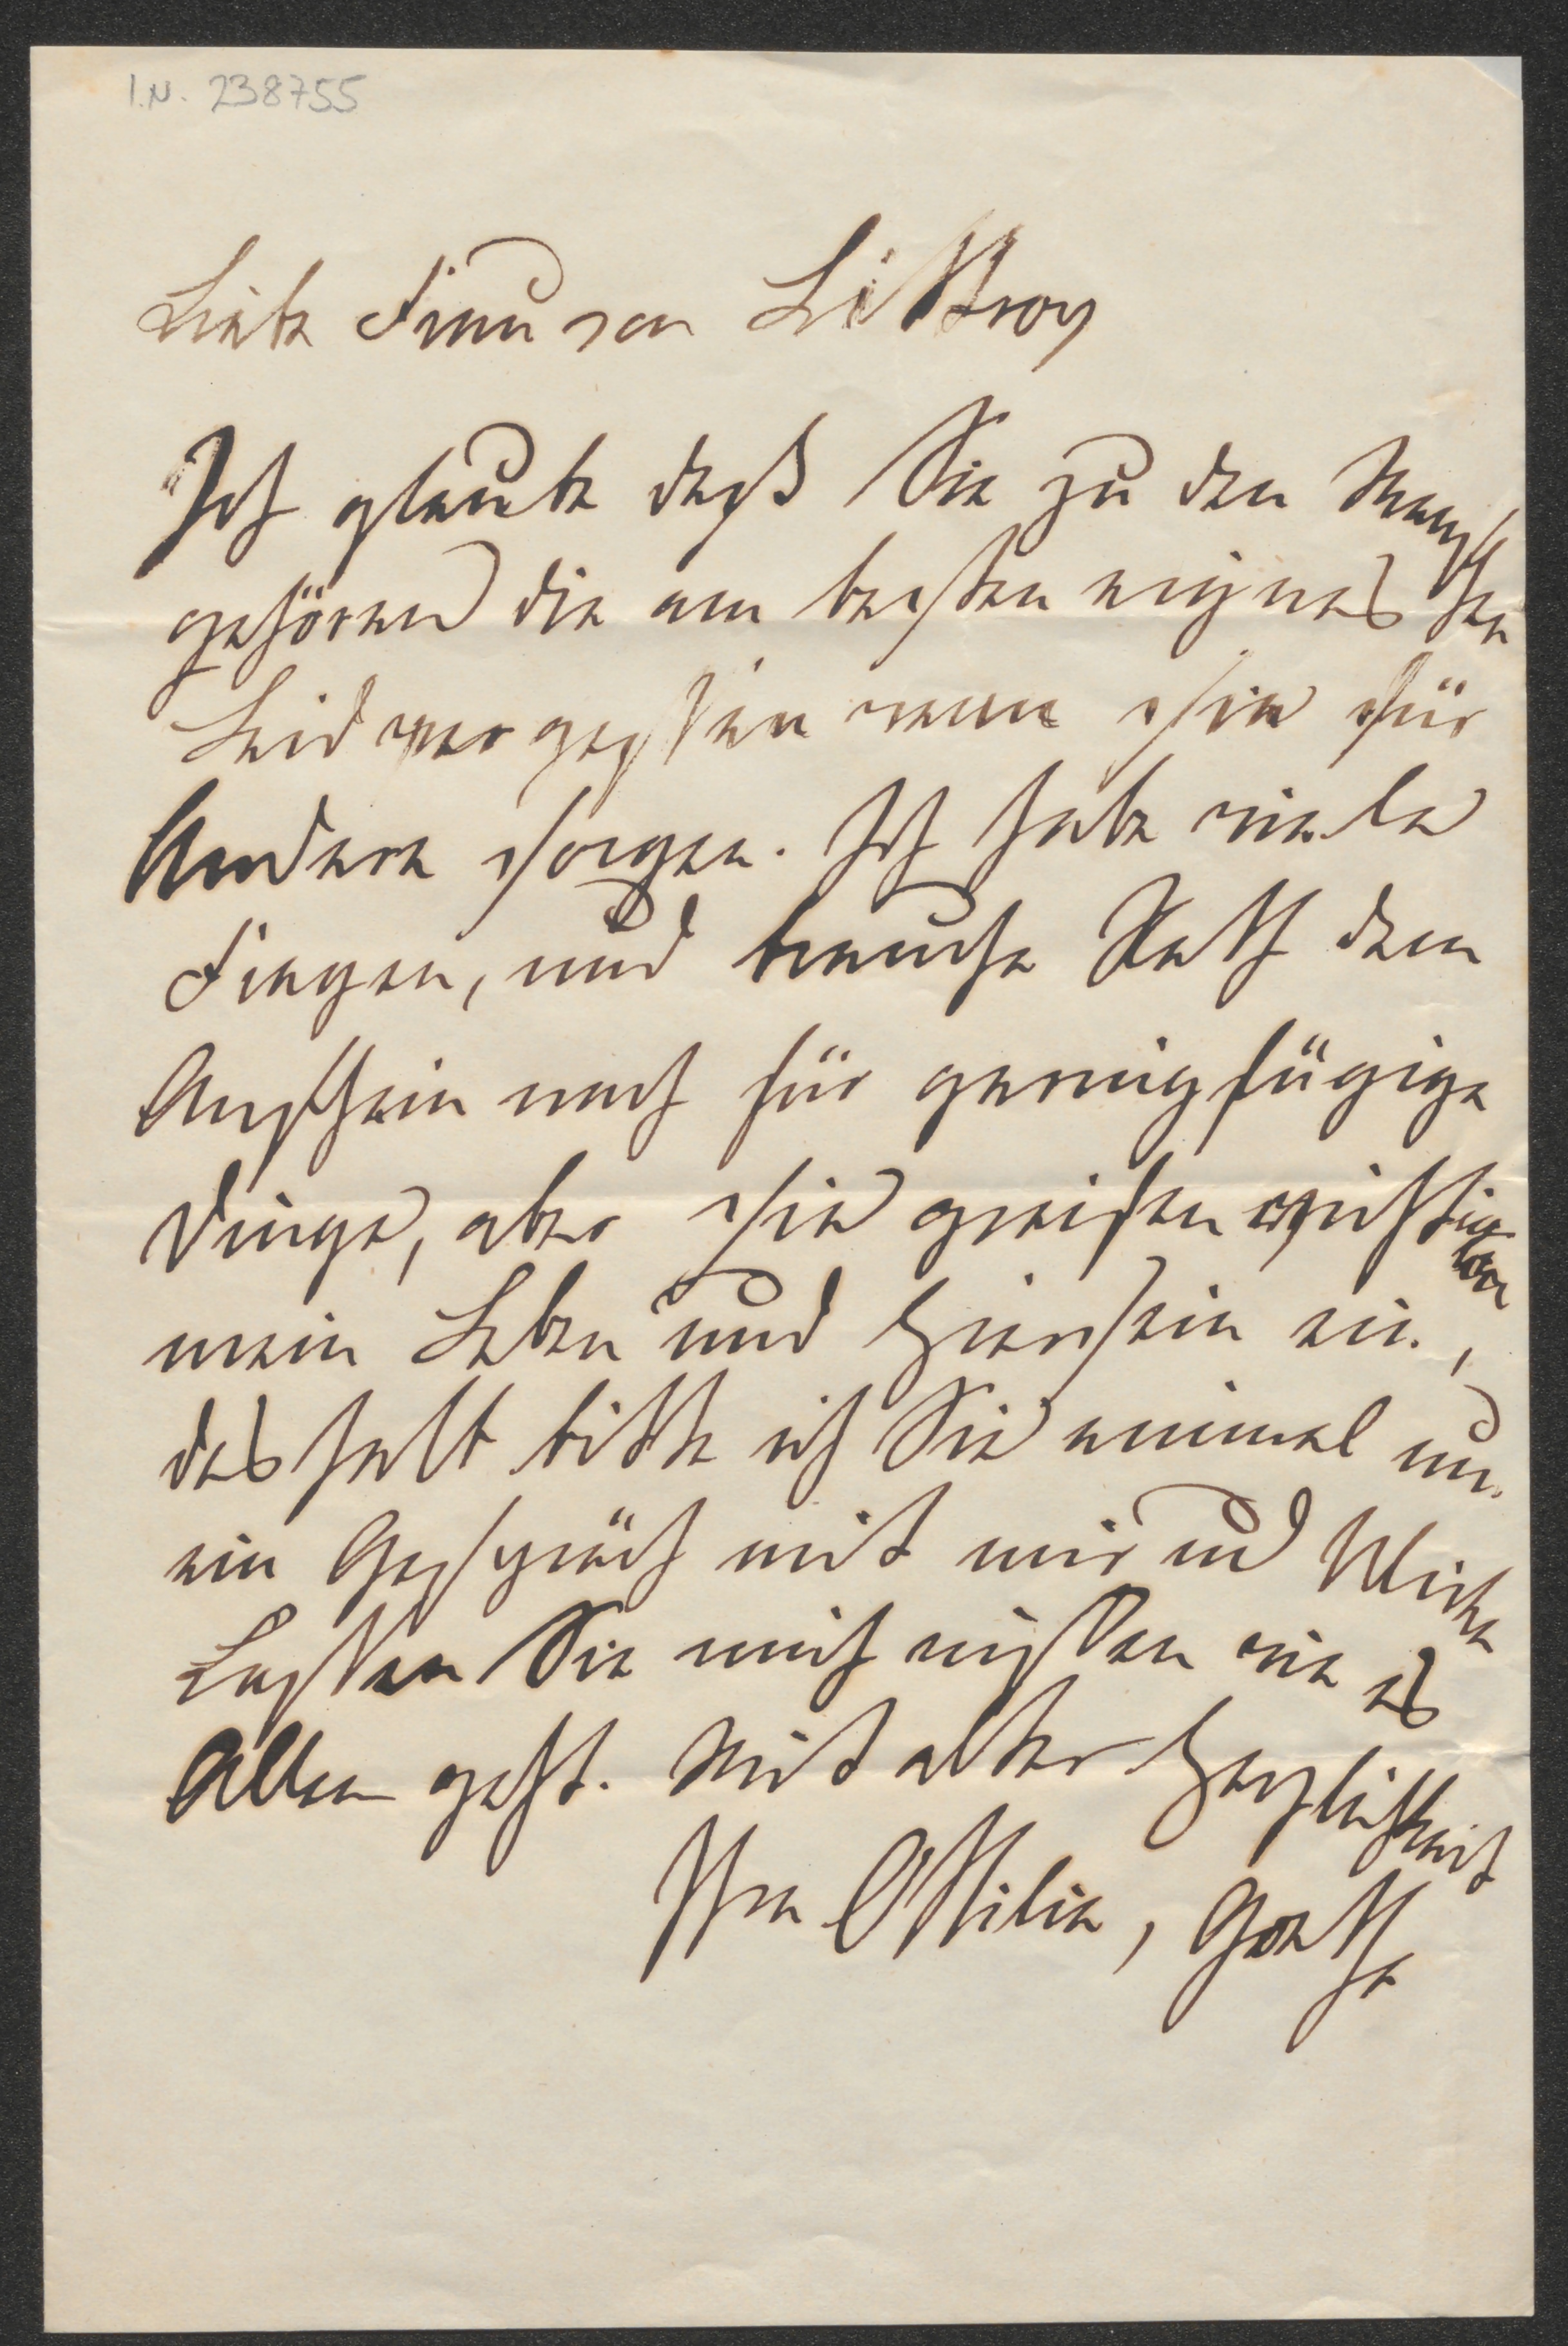 I.N. 238755
Liebe Frau von Littrow
Ich glaube daß Sie zu den Mensch
gehören die am besten eignes hen
Leid vergessen wenn sie für
Andere sorgen. Ich habe viele
Fragen, und brauche Rath dem
Anschein nach für geringfügige
Dinge, aber sie greifen wichtig
mein Leben und Hiersein ein,
deshalb bitte ich Sie einmal um
ein Gespräch mit mir und
Lassen Sie mich wissen wie es
Allen geht. Mit alter Herzlichkeit
Ihre Ottilie, Goethe